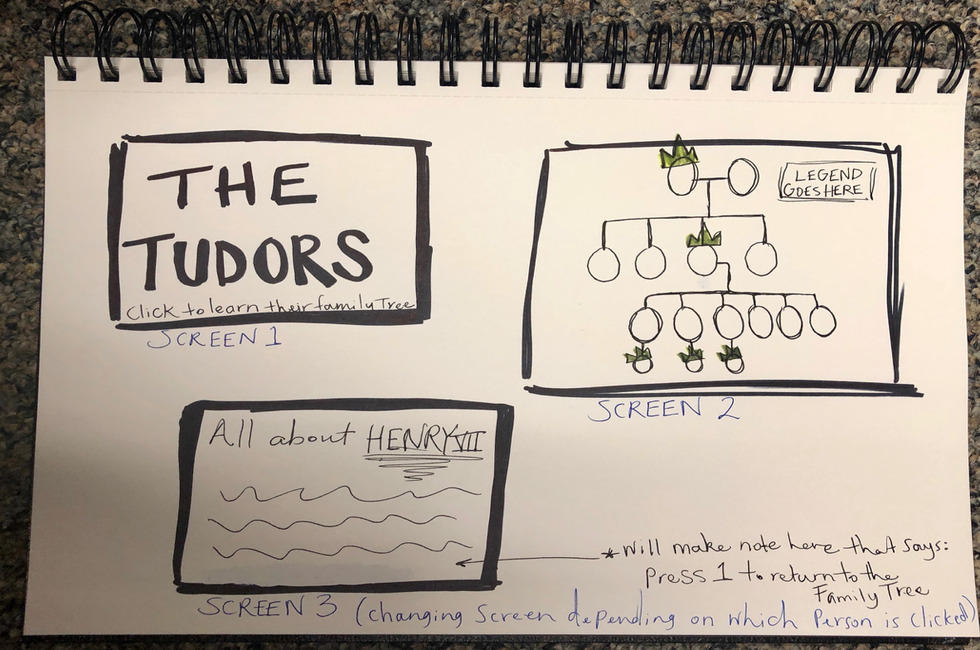 THE
TUDORS
Click to learn their family Tree
SCREEN 1
LEGEND
GOES HERE
SCREEN 2
All about HENRY VII
* Will make note here that says:
Press 1 to return to the
Family Tree
SCREEN 3 (changing screen depending on which Person is clicked)